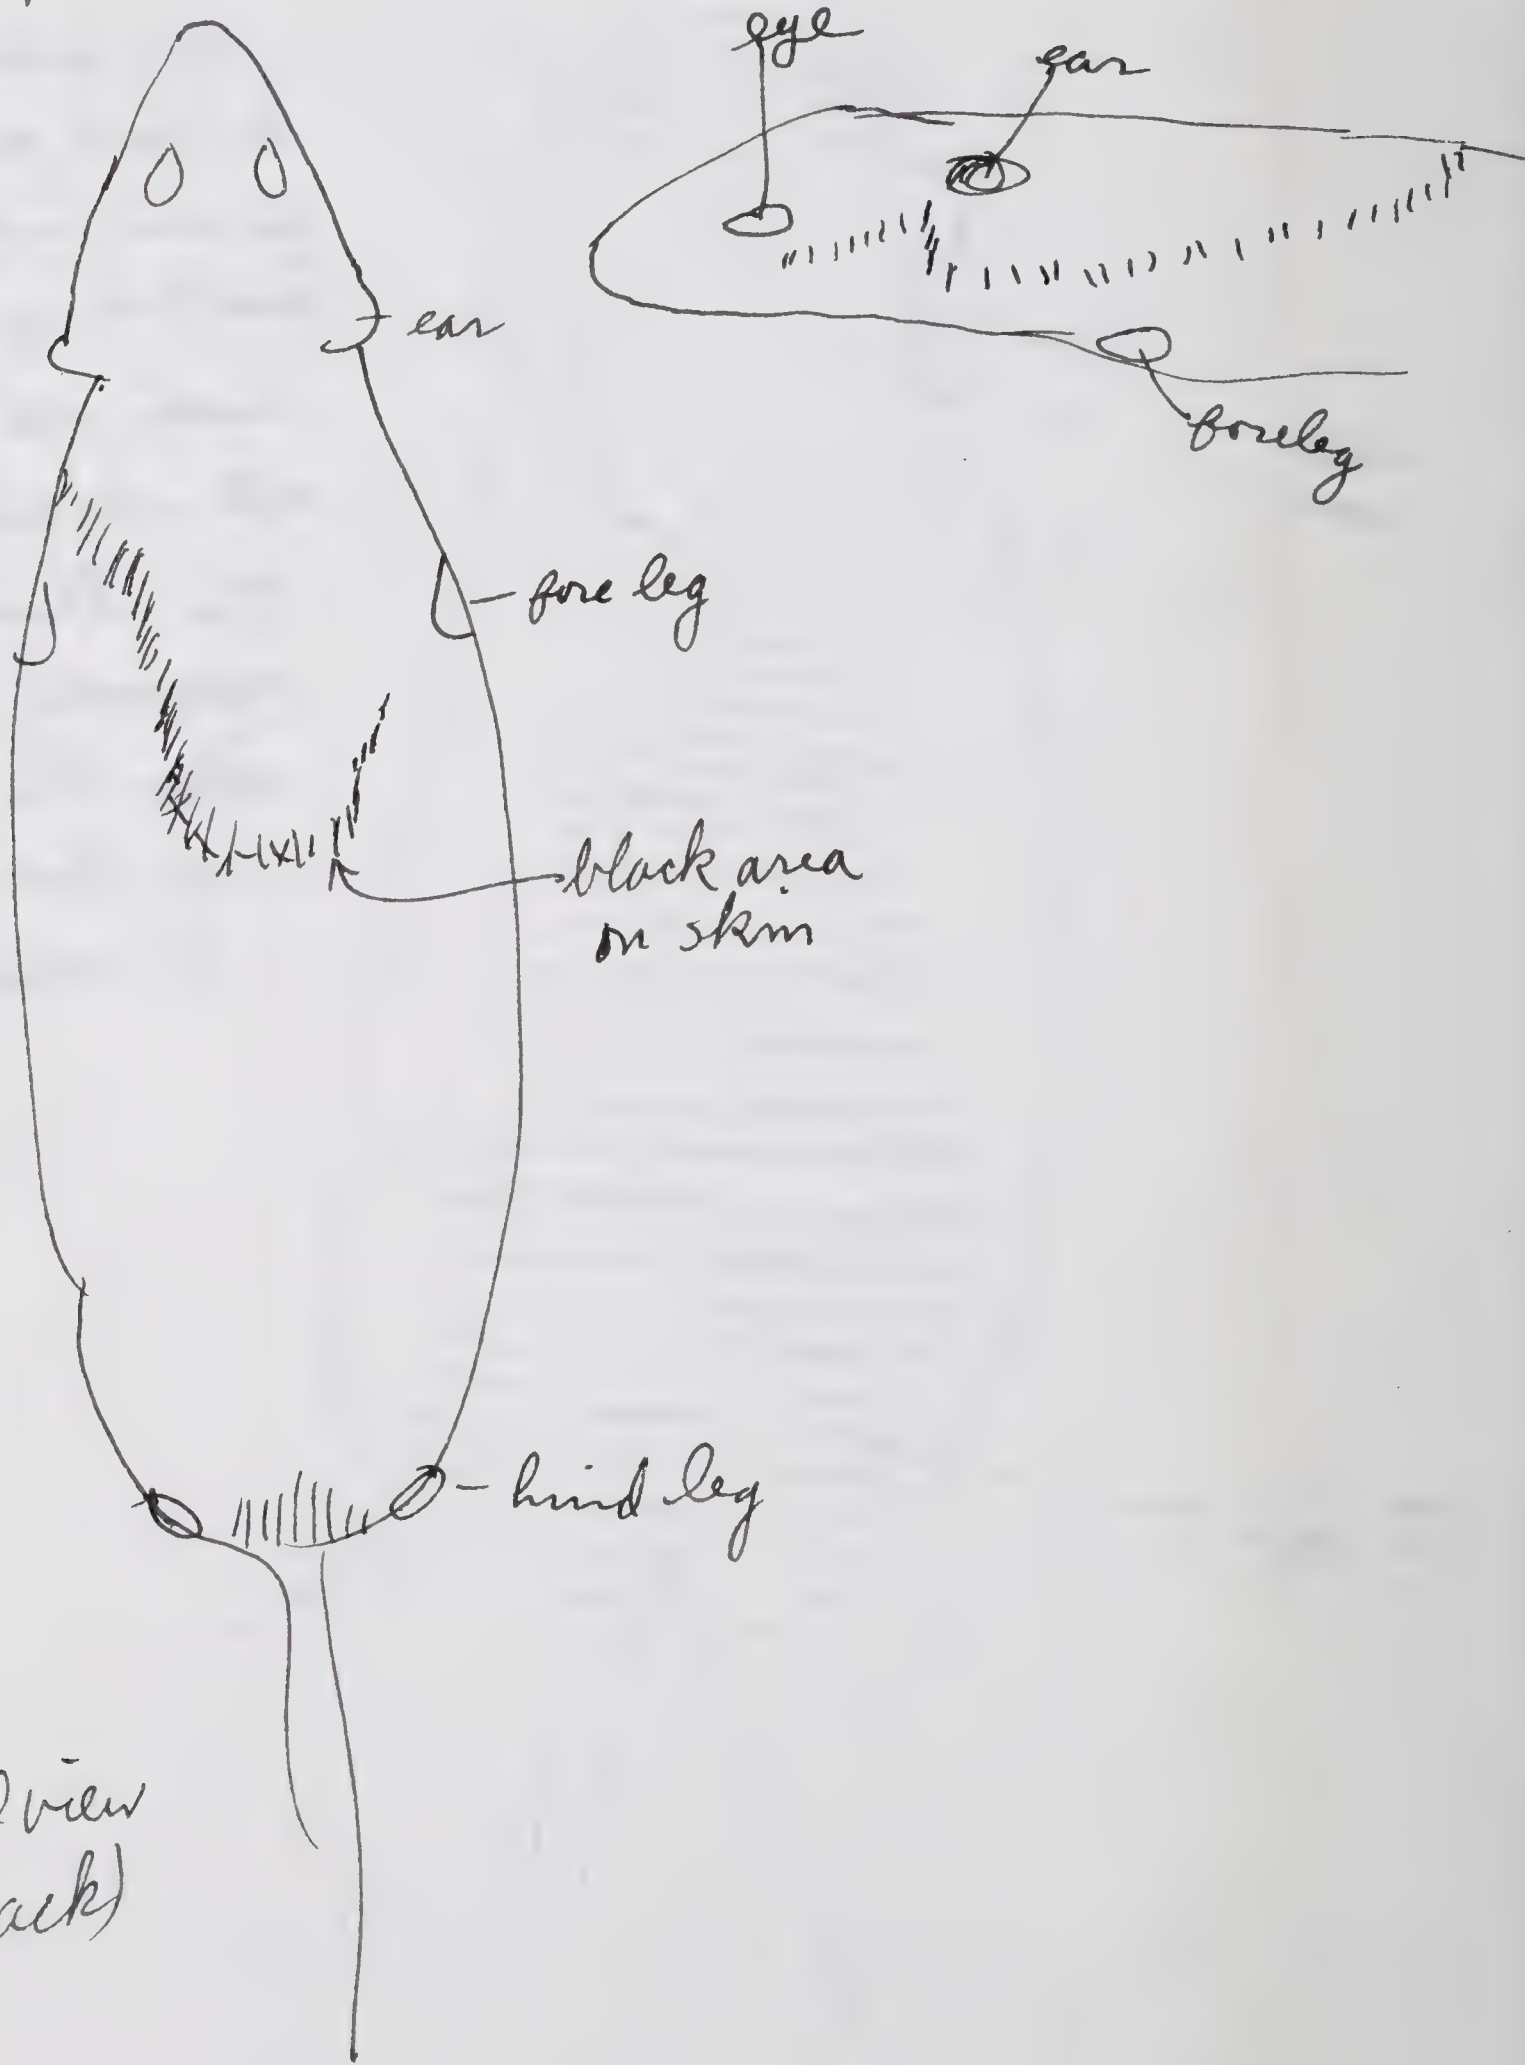 eye
ear
ear
foreleg
fore leg
black area
on skin
hind leg
view
ack)